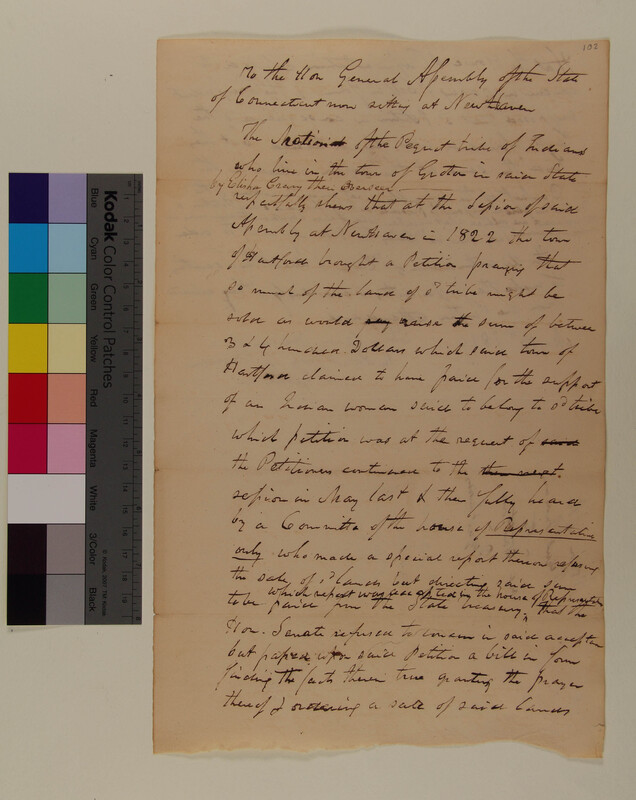 102
To the Hon General Assembly of the State
of Connecticut now sitting at New Haven
The of the Pequot tribe of Indians
who live in the town of Groton in said State
by Elisha Crary their Overseer
respectfully shews that at the Session of said
Assembly at New Haven in 1822 the town
of Hartford brought a Petition praying that
so much of the land of sd tribe might be
sold as would pay raise the sum of between
3 & 4 hundred Dollars which said town of
Hartford claimed to have paid for the support
of an Indian woman said to belong to sd tribe
which petition was at the request of said
the Petitioners continued to the then next
session in May last & then fully heard
by a Committee of the house of Representatives
only who made a special report thereon refusing
the sale of sd lands but directing said sum
which report was accepted by the house of Representatives
to be paid from the State treasury, that the
Hon. Senate refused to concur in said acception
but passed upon said Petition a bill in form
finding the facts therein true granting the prayer
thereof & ordering a sale of said lands
Kodak
Color Control Patches
Blue
Cyan
Green
Yellow
Red
Magenta
White
3/Color
Black
© Kodak, 2007 TM: Kodak